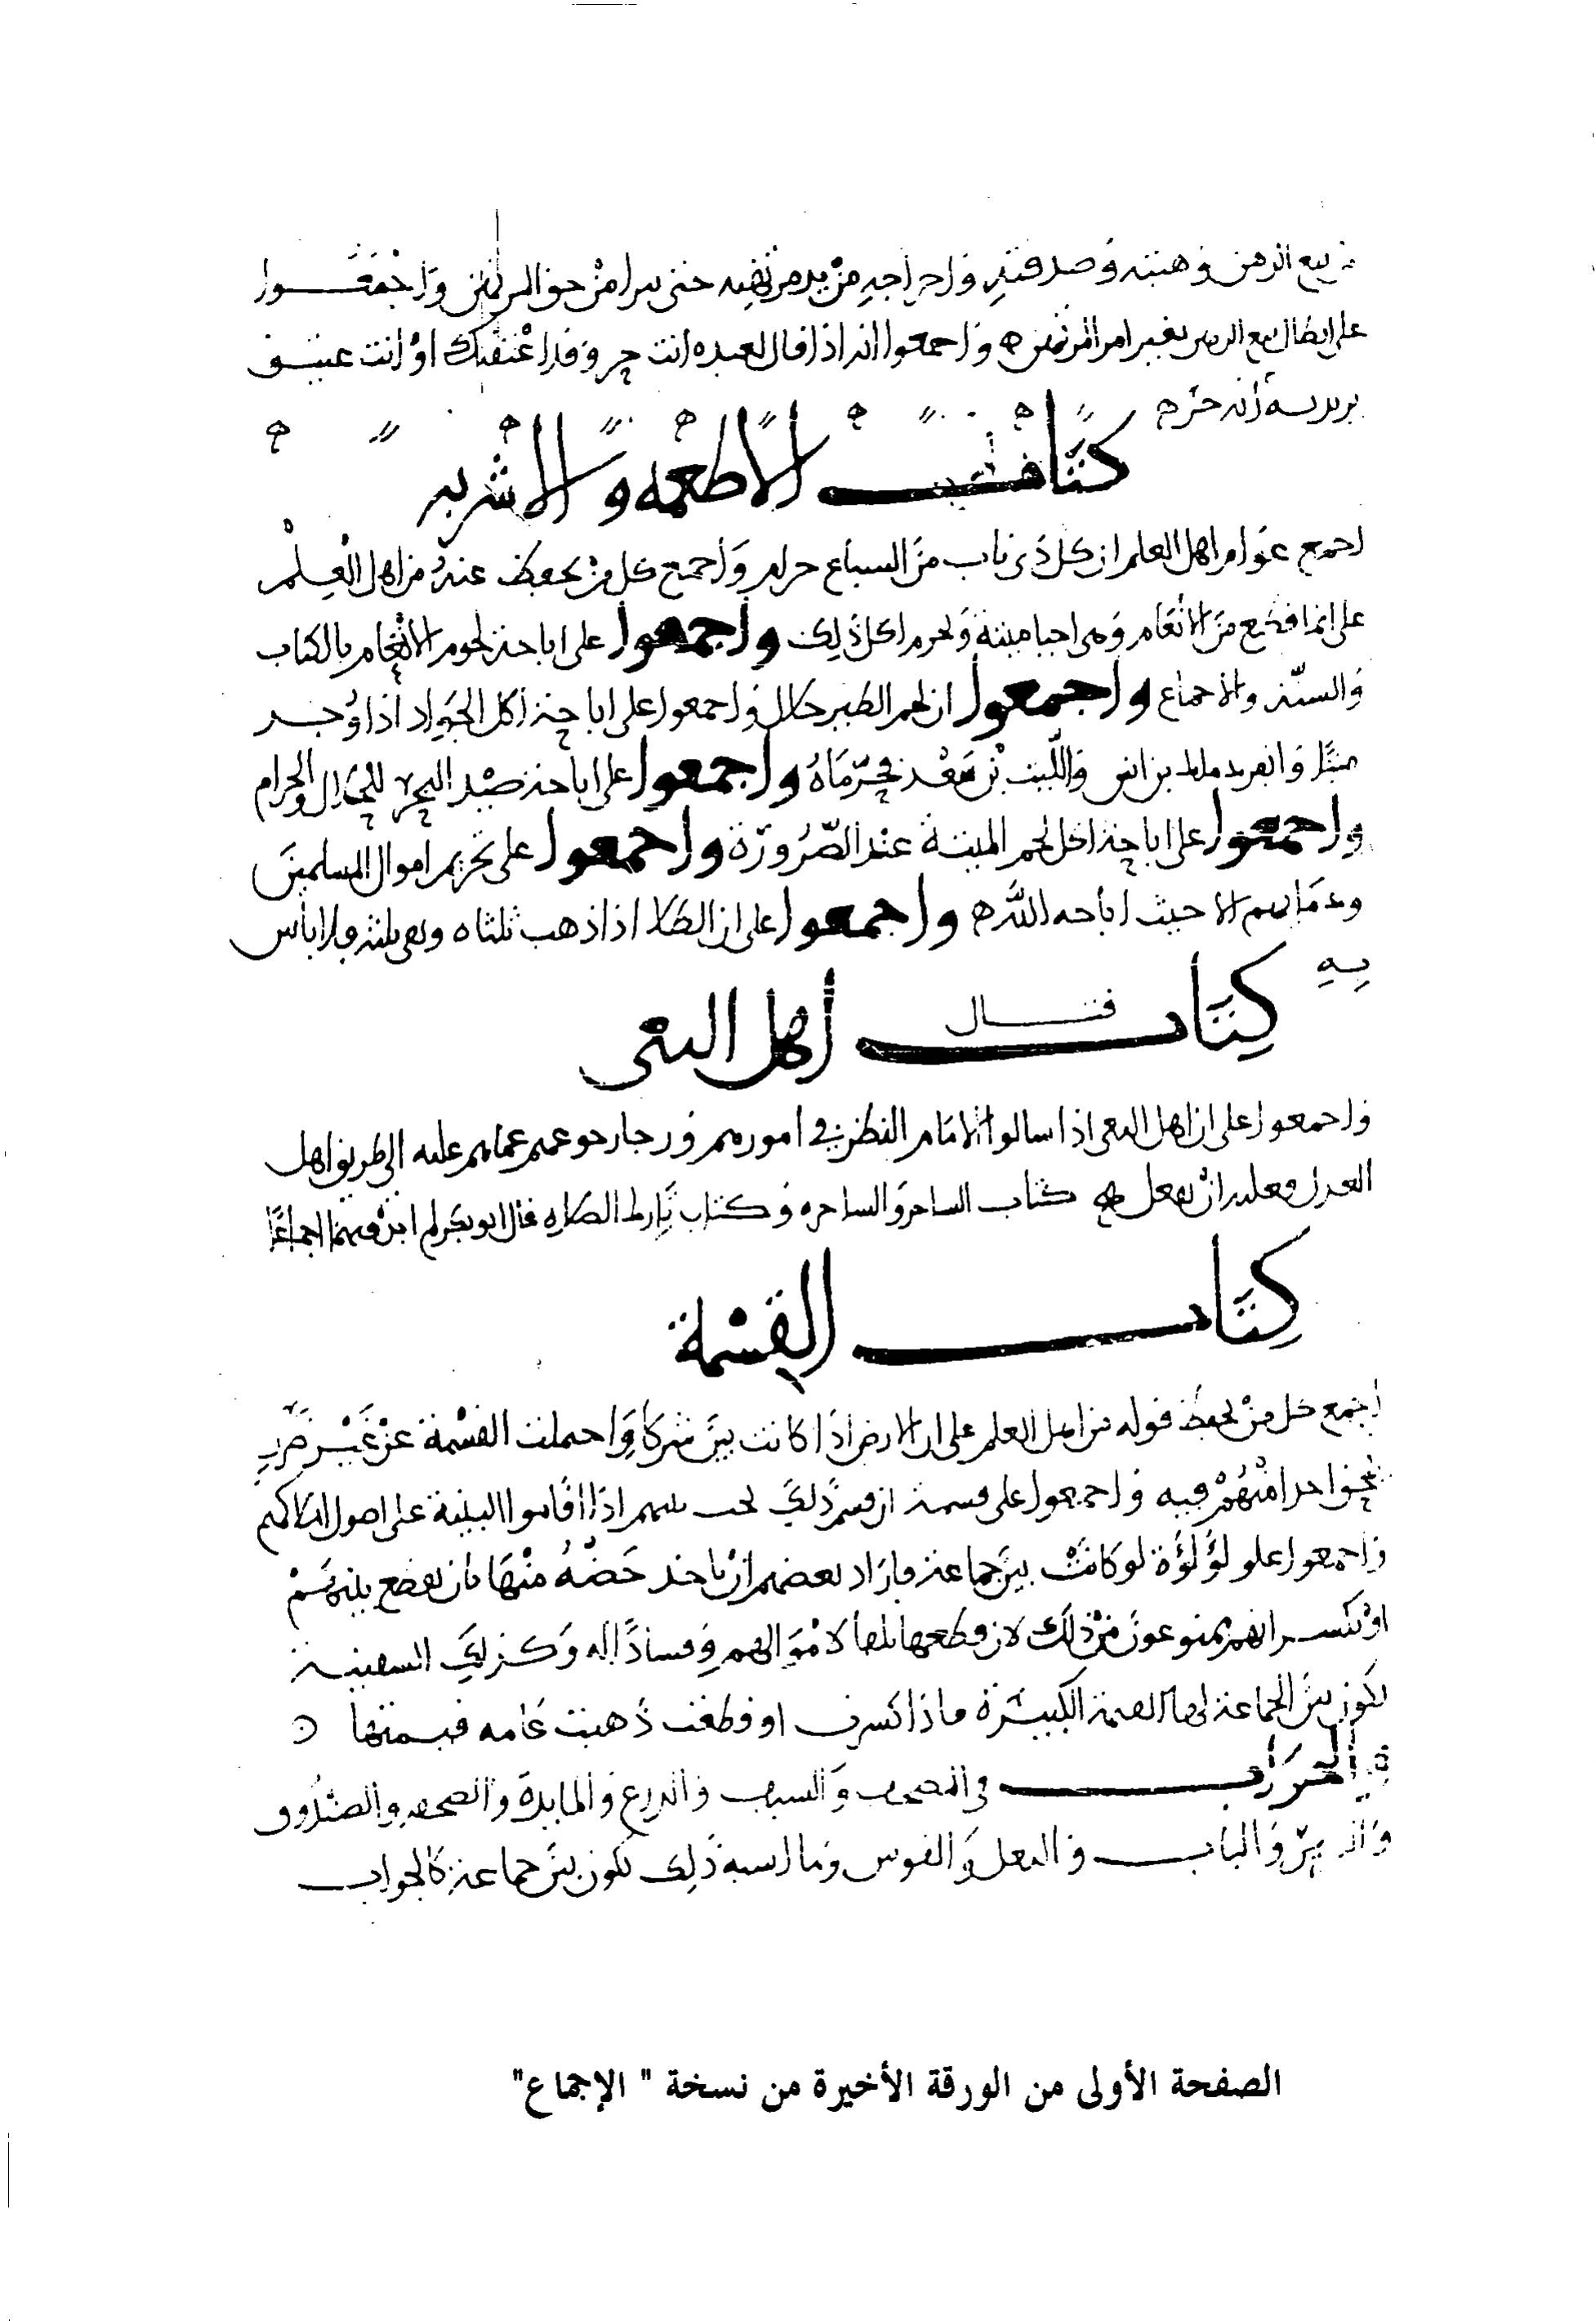 بيع الرهن وهبته وصدقته واخراجه من يد مرتهنه حتى يبرا من حق المرتهن وَاجْمَعُـــوا
على ابطال بيع الرهن بغير امر المرتهن ه واجمعوا انه اذا قال لعبده انت حر وقد اعتقتك او انت عتيق
يريد به انه حر ه
كتاب الأطعمه والاشربه
اجمع عوام اهل العلم ان كل ذي ناب من السباع حرام وَاجمع كل من يحفظ عنهُ من اهل العِلْم
على ان ما قطع من الأنعام وهي احيا ميتة وَيحرم اكل ذلك واجمعوا على اباحة لحوم الانعام بالكتاب
والسنّة والاجماع واجمعوا ان لحم الطير حلال واجمعوا على اباحة اكل الجراد اذا وُجد
ميتًا وانفرد ملك بن انس والليث بْن سَعْد فحرّمَاهُ واجمعوا على اباحة صيْد البحر للحلال والحرام
واجمعوا على اباحة اكل لحم الميتة عند الضّرُورَة واجمعوا على تحريم اموال المسلمين
ودمَايهم الا حيث اباحه اللّه ه واجمعوا على ان الطلا اذا ذهب ثلثاه وبقي ثلثه فلا باس
بِهِ
كِتَاب قتـال أهل البغى
واجمعوا على ان اهل البغى اذا سالوا الامام النظر في امورهم ورجا رجوعهم عما هم عليه الى طريق اهل
العدل فعليه ان يفعل ه كتاب الساحر والساحره وكتاب تارك الصلاه قال ابو بكر لم اجد فيهما اجماعًا
كِتَاب القِسْمة
اجمع كل من يحفظ قوله من اهل العلم على ان الارض اذا كانت بين شركا وَاحتملت القسْمة عن غَيْر ضرر
واجمعوا على قسمة ذلك بينهم اذا اقاموا البينة على اصول املاكهم
واجمعوا على لُؤلُؤة لو كانتْ بين جماعة فاراد بعضهم ان ياخذ حَضّهُ منْهَا بان يقطع بينهم
او تكسر انهم يمنوعون من ذلك لان في قطعها تلفا لامْوَالهم وفسادًا له وكذلك السفينة
تكون بين الجماعة لها القيمة الكبيرة فاذا كسرت او قطعت ذهبت عامه قيمتها
الجَوَاب في المصحف والسيف والدرع والمايدة والصحفه والصندوق
والسرير والباب والنعل والقوس وما اشبه ذلك تكون بين جماعة كالجواب
الصفحة الأولى من الورقة الأخيرة من نسخة " الإجماع"